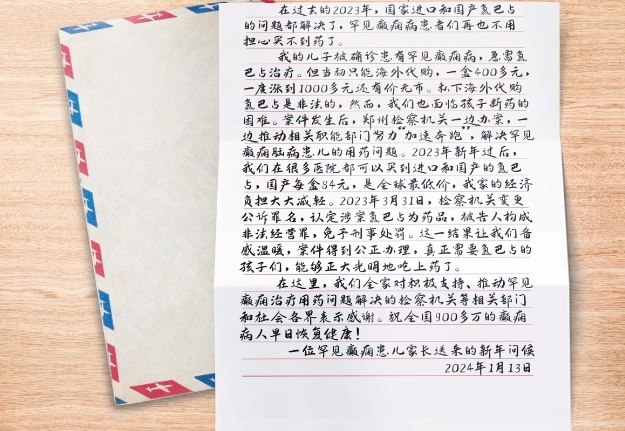 在过去的2023年，国家进口和国产氯巴占
的问题都解决了，罕见癫痫病患者们再也不用
担心买不到药了。
我的儿子被确诊患有罕见癫痫病，急需氯
巴占治疗。但当初只能海外代购，一盒400多元，
一度涨到1000多元还有价无市。私下海外代购
氯巴占是非法的，然而，我们也面临孩子断药的
困难。案件发生后，郑州检察机关一边办案，一
边推动相关职能部门努力“加速奔跑”，解决罕见
癫痫脑病患儿的用药问题。2023年新年过后，
我们在很多医院都可以买到进口和国产的氯巴
占，国产每盒84元，是全球最低价，我家的经济
负担大大减轻。2023年3月31日，检察机关变更
公诉罪名，认定涉案氯巴占为药品，被告人构成
非法经营罪，免予刑事处罚。这一结果让我们备
感温暖，案件得到公正办理，真正需要氯巴占的
孩子们，能够正大光明地吃上药了。
在这里，我们全家对积极支持、推动罕见
癫痫治疗用药问题解决的检察机关等相关部门
和社会各界表示感谢。祝全国900多万的癫痫
病人早日恢复健康！
一位罕见癫痫患儿家长送来的新年问候
2024年1月13日